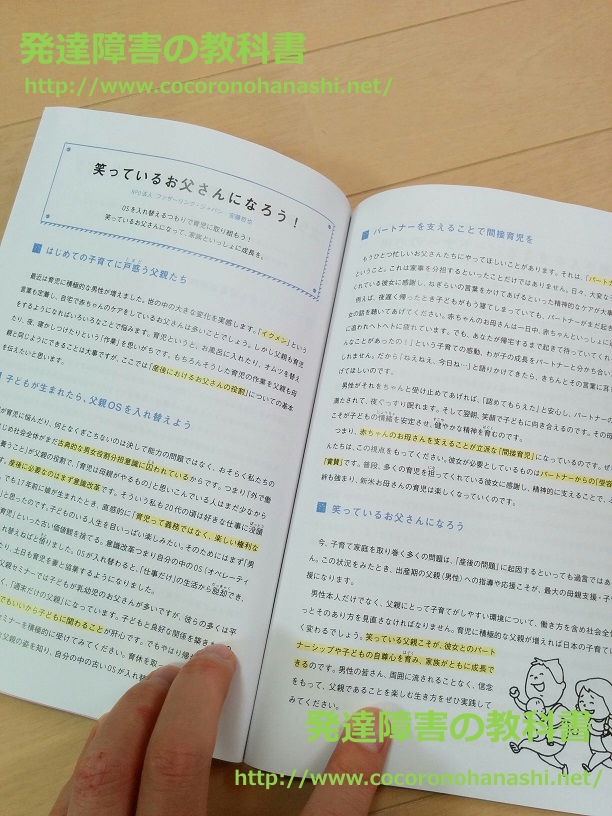 発達障害の教科書
http://www.cocoronohanashi.net/
笑っているお父さんになろう！
NPO法人 ファザーリング・ジャパン 安藤哲也
OSを入れ替えるつもりで育児に取り組もう！
笑っているお父さんになって、家族といっしょに成長を。
はじめての子育てに戸惑う父親たち
最近は育児に積極的な男性が増えました。世の中の大きな変化を実感します。「イクメン」という
言葉も定着し、自宅で赤ちゃんのケアをしているお父さんは多いことでしょう。しかし父親も育児
をするようになればいろいろなことで悩みます。育児というと、お風呂に入れたり、オムツを替え
たり、夜、寝かしつけたりという「作業」を思いがちです。もちろんそうした育児の作業を父親も母
親と同じようにできることは大事ですが、ここでは「産後におけるお父さんの役割」についての基本
を伝えたいと思います。
子どもが生まれたら、父親OSを入れ替えよう
が育児に悩んだり、何となくぎこちないのは決して能力の問題ではなく、おそらく私たちの
じめ社会全体がまだ古典的な男女役割分担意識に囚われているからです。つまり「外で働
養うこと」が父親の役割で、「育児は母親がやるもの」と思いこんでいる人はまだ少なから
す。産後に必要なのはまず意識改革です。そういう私も20代の頃は好きな仕事に没頭
も17年前に娘が生まれたとき、直感的に「育児って義務ではなく、楽しい権利な
と思ったのです。子どものいる人生を目いっぱい楽しみたい。そのためにはまず「男
育児」といった古い価値観を捨てる。意識改革つまり自分の中のOS（オペレーティ
れ替えねばと悟りました。OSが入れ替わると、「仕事だけ」の生活から脱却でき、
たり、土日も育児を妻と協業するようになりました。
父親セミナーでは子どもが乳幼児のお父さんが多いですが、彼らの多くは平
く、「週末だけの父親」になっています。子どもと良好な関係を築き
でもいいから子どもに関わることが肝心です。でもやはり
セミナーを積極的に受けてみてください。育休を取
父親の姿を知り、自分の中の古いOSが入れ替
パートナーを支えることで間接育児を
もうひとつ忙しいお父さんたちにやってほしいことがあります。それは、「パート
ということ。これは家事を分担するといったことだけではありません。日々、大変な
くれている彼女に感謝し、ねぎらいの言葉をかけてあげるといった精神的なケアが大事
例えば、夜遅く帰ったとき子どもがもう寝てしまっていても、パートナーがまだ起き
女の話を聴いてあげてください。赤ちゃんのお母さんは一日中、赤ちゃんといっしょに過
に追われヘトヘトに疲れています。でも、あなたが帰宅するまで起きて待っていてくれ
んなことがあったの！」という子育ての感動、わが子の成長をパートナーと分かち合い
しれません。だから「ねえねえ、今日ね…」と語りかけてきたら、きちんとその言葉に耳
げてほしいのです。
男性がそれをちゃんと受け止めてあげれば、「認めてもらえた」と安心し、パートナーの
満たされて、夜ぐっすり眠れます。そして翌朝、笑顔で子どもに向き合えるのです。その母
こそが子どもの情緒を安定させ、健やかな精神を育むのです。
つまり、赤ちゃんのお母さんを支えることが立派な「間接育児」になっているのです。ぜ
んたちは、この視点をもってください。彼女が必要としているものはパートナーからの「受容
「賞賛」です。普段、多くの育児を担ってくれている彼女に感謝し、精神的に支えることで、
絆も強まり、新米お母さんの育児は楽しくなっていくのです。
笑っているお父さんになろう
今、子育て家庭を取り巻く多くの問題は、「産後の問題」に起因するといっても過言ではあ
ん。この状況をみたとき、出産期の父親（男性）への指導や応援こそが、最大の母親支援・子
援になります。
男性本人だけでなく、父親にとって子育てがしやすい環境について、働き方を含め社会全
っとそのあり方を見直さなければなりません。育児に積極的な父親が増えれば日本の子育て
く変わるでしょう。笑っている父親こそが、彼女とのパート
ナーシップや子どもの自尊心を育み、家族がともに成長で
きるのです。男性の皆さん、周囲に流されることなく、信念
をもって、父親であることを楽しむ生き方をぜひ実践して
みてください。
発達障害の教科書
http://www.cocoronohanashi.net/